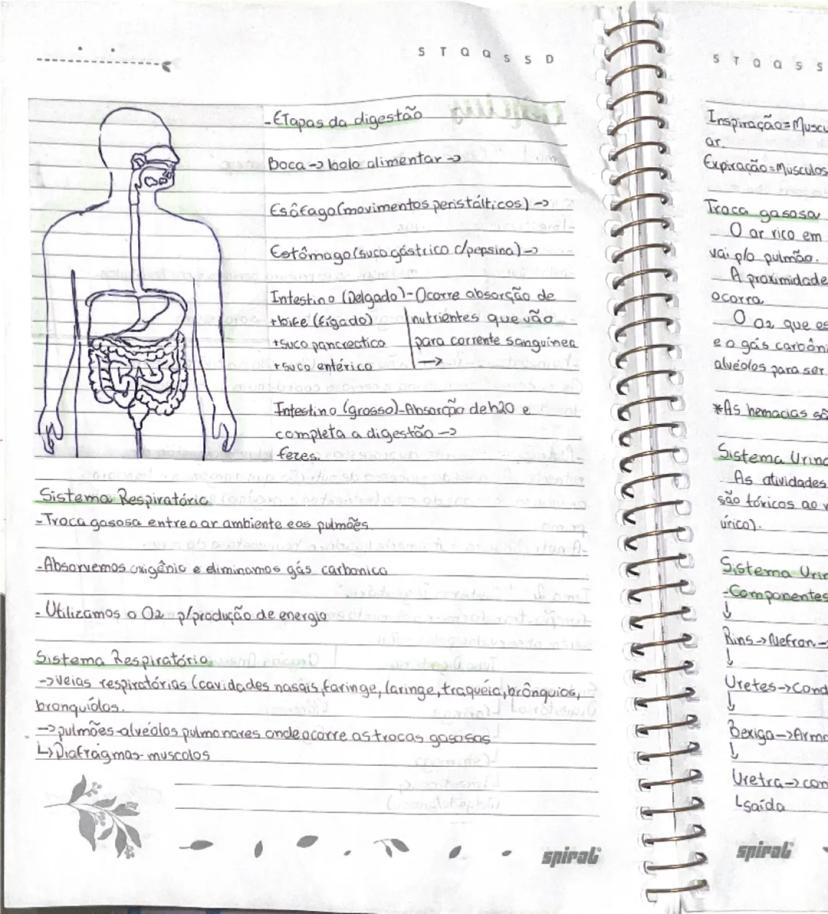 S T Q Q S S D
-Etapas da digestão
Boca -> bolo alimentar ->
Esôfago (movimentos peristálticos) ->
Estômago (suco gástrico c/pepsina) ->
Intestino (Delgado) - Ocorre absorção de
+bife (fígado) nutrientes que vão
+suco pancreatico para corrente sanguínea
+suco entérico ->
Intestino (grosso) - Absorção de h20 e
completa a digestão ->
fezes.
Sistema Respiratório
-Troca gasosa entre o ar ambiente e os pulmões.
-Absorvemos oxigênio e eliminamos gás carbonico
-Utilizamos o O2 p/produção de energia
Sistema Respiratório
->veias respiratórias (cavidades nasais, faringe, laringe, traqueia, brônquios,
bronquíolos.
->pulmões-alvéolos pulmonares onde ocorre as trocas gasosas
↳Diafragma- musculos
spiral
S T Q Q S S
Inspiração=Muscu
ar.
Expiração=Músculos
Troca gasosa
O ar rico em
vai p/o pulmão.
A proximidade
ocorra
O O2 que es
e o gás carbôni
alvéolos para ser
*As hemacias sã
Sistema Urina
As atividades
são tóxicos ao
úrico).
Sistema Urin
-Componentes
↓
Rins->Nefron-
↓
Uretes->Cond
↓
Bexiga->Arma
↓
Uretra->con
↳saída
spiral